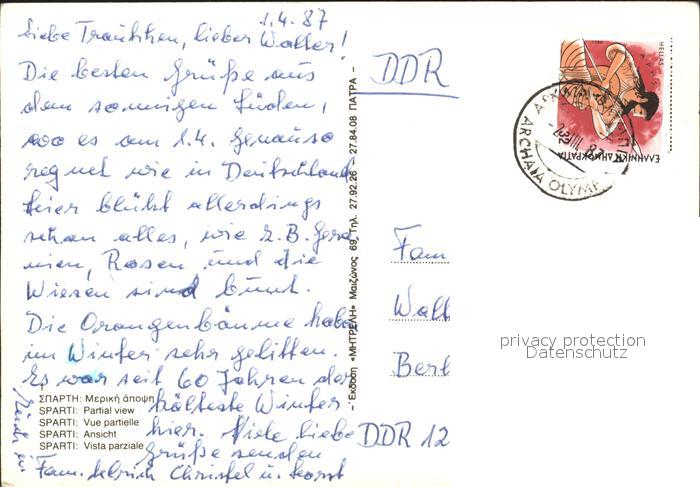 1.4.87
Liebe Traudchen, lieber Walter!
Die besten Grüße aus
dem sonnigen Süden,
wo es am 1.4. genauso
regnet wie in Deutschland
Hier blüht allerdings
schon alles, wie z.B. Gera-
nien, Rosen und die
Wiesen sind bunt.
Die Orangenbäume haben
im Winter sehr gelitten.
Es war seit 60 Jahren der
kälteste Winter
hier. Viele liebe
Grüße senden
Fam. Christel u. Horst
ΣΠΑΡΤΗ: Μερική άποψη
SPARTI: Partial view
SPARTI: Vue partielle
SPARTI: Ansicht
SPARTI: Vista parziale
– Έκδοση «ΜΗΤΡΕΛΗ» Μαιζώνος 69, Τηλ. 27.92.26 – 27.84.08 ΠΑΤΡΑ –
DDR
HELLAS
ΕΛΛΗΝΙΚΗ ΔΗΜΟΚΡΑΤΙΑ
ARCHAIA OLYMP
Fam
Walt
Berl
DDR 12
privacy protection
Datenschutz